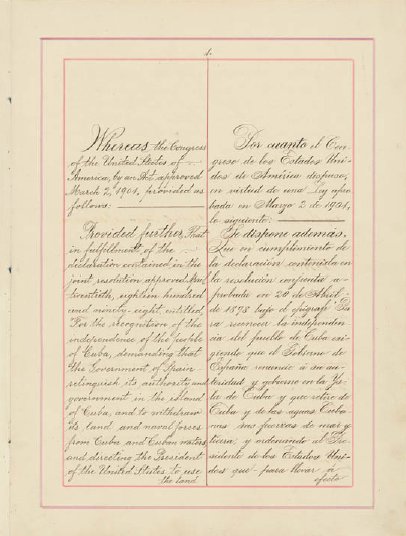 1.
Whereas the Congress
of the United States of
America, by an Act approved
March 2, 1901, provided as
follows:
Provided further, That
in fulfillment of the
declaration contained in the
joint resolution approved April
twentieth, eighteen hundred
and ninety-eight, entitled,
"For the recognition of the
independence of the people
of Cuba, demanding that
the Government of Spain
relinquish its authority and
government in the island
of Cuba, and to withdraw
its land and naval forces
from Cuba and Cuban waters,
and directing the President
of the United States to use
the land
Por cuanto el Con-
greso de los Estados Uni-
dos de América dispuso,
en virtud de una Ley apro-
bada en Marzo 2 de 1901,
lo siguiente:
Se dispone además,
Que en cumplimiento de
la declaración contenida en
la resolución conjunta a-
probada en 20 de Abril
de 1898 bajo el epígrafe "Pa
ra reconocer la independen-
cia del pueblo de Cuba exi-
giendo que el Gobierno de
España renuncie á su au-
toridad y gobierno en la Is-
la de Cuba y que retire de
Cuba y de las aguas Cuba-
nas sus fuerzas de mar y
tierra, y ordenando al Pre-
sidente de los Estados Uni-
dos que para llevar á
efecto